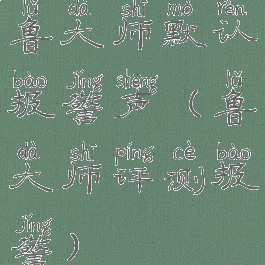 lǔ dà shī mò rèn
鲁大师默认
bào jǐng shēng lǔ
报警声（鲁
dà shī píng cè bào
大师评测报
jǐng
警）